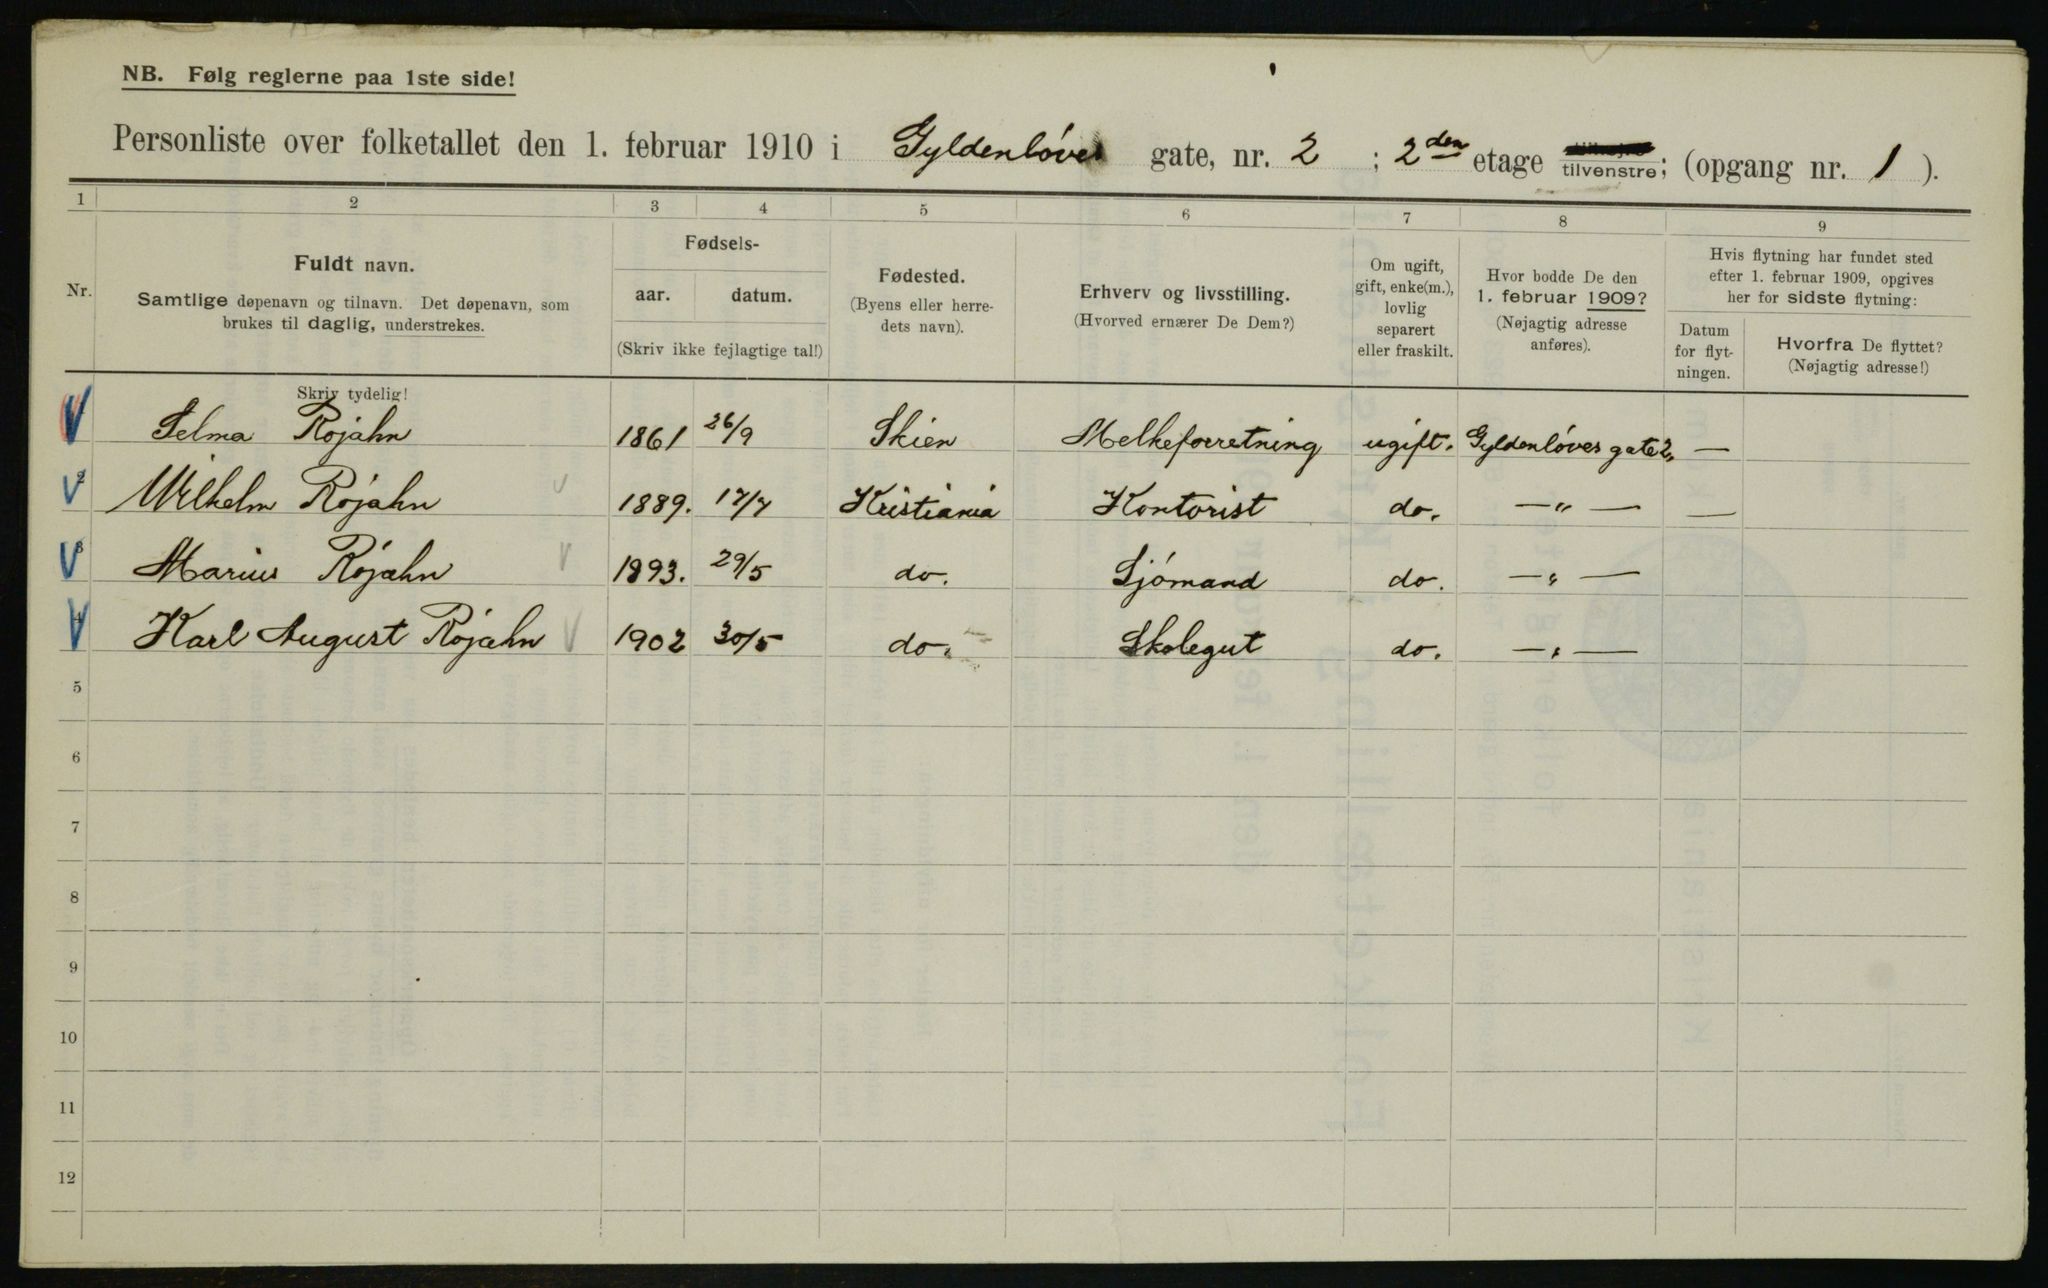 NB. Følg reglerne paa 1ste side!
Personliste over folketallet den 1. februar 1910 i Gyldenløves gate, nr. 2 ; 2den etage tilvenstre; (opgang nr. 1 ).
1 2 3 4 5 6 7 8 9
Nr.
Fuldt navn.
Samtlige døpenavn og tilnavn. Det døpenavn, som
brukes til daglig, understrekes.
Fødsels-
aar. datum.
(Skriv ikke fejlagtige tal!)
Fødested.
(Byens eller herre-
dets navn).
Erhverv og livsstilling.
(Hvorved ernærer De Dem?)
Om ugift,
gift, enke(m.),
lovlig
separert
eller fraskilt.
Hvor bodde De den
1. februar 1909?
(Nøjagtig adresse
anføres).
Hvis flytning har fundet sted
efter 1. februar 1909, opgives
her for sidste flytning:
Datum
for flyt-
ningen.
Hvorfra De flyttet?
(Nøjagtig adresse!)
Skriv tydelig!
Selma Rojahn 1861 26/9 Skien Melkeforretning ugift. Gyldenløves gate 2, —
2 Wilhelm Rojahn 1889. 17/7 Kristiania Kontorist do. —„— —
3 Marius Rojahn 1893. 29/5 do. Sjómand do. —„—
4 Karl August Rojahn 1902 30/5 do. Skolegut do. —„—
5
6
7
8
9
10
11
12